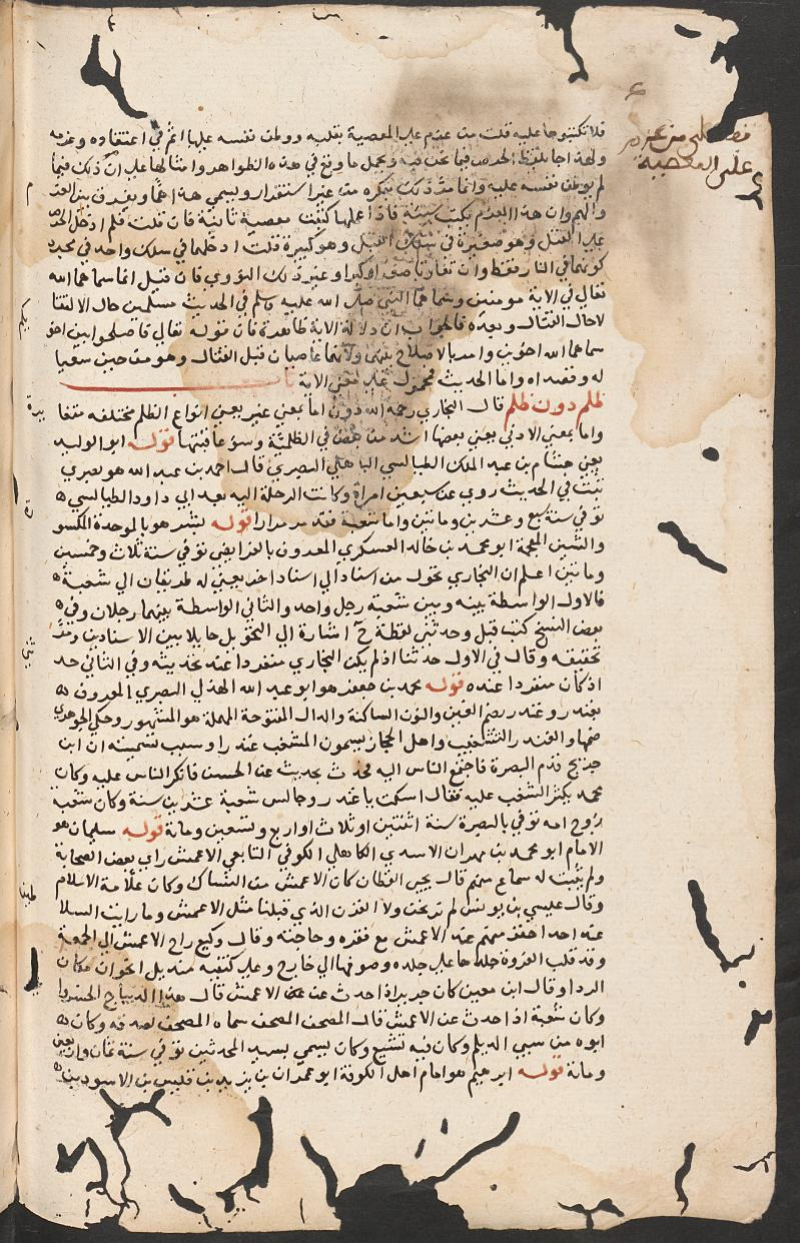 فلا تكتبوها عليه قلت من عزم على المعصية بقلبه ووطن نفسه عليها اثم في اعتقاده وعزمه
ولهذا جا بلفظ الحرص فيما نحن فيه ويحمل ما وقع في هذه الظواهر وامثالها على ان ذلك فيما
لم يوطن نفسه عليه وانما مر ذلك بفكره من غير استقرار ويسمي هذا هما ويفرق بين الهم
والعزم وان هذا العزم يكتب سيئة فاذا عملها كتبت معصية ثانية فان قلت فلم ادخل الحرص
على القتل وهو صغيرة في سلك القتل وهو كبيرة قلت ادخلهما في سلك واحد في مجرد
كونهما في النار فقط وان تفاوتا صغرا وكبرا وغير ذلك النووي فان قيل انما سماهما الله
تعالى في الاية مومنين وسماهما النبي صلى الله عليه وسلم في الحديث مسلمين حال الالتقا
لا حال القتال وبعده فالجواب ان دلالة الاية ظاهرة فان قوله تعالى فاصلحوا بين اخو
سماهما الله اخوين وامر بالاصلاح بينهما ولانهما عاصيان قبل القتال وهو من حين سعيا
له وقصداه واما الحديث فمحمول على معنى الاية باب
ظلم دون ظلم قال البخاري رحمه الله دون اما بمعنى غير يعني انواع الظلم مختلفه متغا
واما بمعنى الادنى يعني بعضها اشد من بعض في الظلمية وسوء عاقبتها قوله ابو الوليد
يعني هشام بن عبد الملك الطيالسي الباهلي البصري قال احمد بن عبد الله هو بصري
ثبت في الحديث روى عن سبعين امراة وكانت الرحلة اليه بعد ابي داود الطيالسي
توفي سنة سبع وعشرين ومايتين واما شعبة فقد مر مرارا قوله بشر هو بالموحدة المكسو
والشين المعجمة ابو محمد بن خالد العسكري المعروف بالفرايضي توفي سنة ثلاث وخمسين
ومايتين اعلم ان البخاري تحول من اسناد الى اسناد اخر يعني له طريقان الى شعبة
فالاول الواسطة بينه وبين شعبة رجل واحد والثاني الواسطة بينهما رجلان وفي
بعض النسخ كتب قبل وحدثني لفظة ح اشارة الى التحويل حايلا بين الاسنادين ومر
تحقيقه وقال في الاول حدثنا اذ لم يكن البخاري منفردا عند تحديثه وفي الثاني حد
اذ كان منفردا عنده قوله محمد بن جعفر هو ابو عبد الله الهذلي البصري المعروف
بغندر وغندر بضم الغين والنون الساكنة والدال المفتوحة المهملة هو المشهور وحكي الجوهري
ضمها والغندر التشغيب واهل الحجاز يسمون المشغب غندرا وسبب تسميته ان ابن
جريج قدم البصرة فاجتمع الناس اليه فحدث بحديث عن الحسن فانكر الناس عليه وكان
محمد يكثر الشغب عليه فقال اسكت يا غندر وجالس شعبة عشرين سنة وكان شعبة
زوج امه توفي بالبصرة سنة اثنتين او ثلاث او اربع وتسعين وماية قوله سليمان هو
الامام ابو محمد بن مهران الاسدي الكاهلي الكوفي التابعي الاعمش راى بعض الصحابة
ولم يثبت له سماع منهم قال يحيى القطان كان الاعمش من النساك وكان علامة الاسلام
وقال عيسى بن يونس لم نر نحن ولا القرن الذي قبلنا مثل الاعمش وما رايت السلا
عند احد احقر منهم عند الاعمش مع فقره وحاجته وقال وكيع راح الاعمش الى الجمعة
وقد قلب الفروة جلدها على جلده وصوفها الى خارج وعلى كتفيه منديل الخوان مكان
الردا وقال ابن معين كان جرير اذا حدث عن الاعمش قال هذا الديباج الخسرو
وكان شعبة اذا حدث عن الاعمش قال المصحف المصحف سماه المصحف لصدقه وكان
ابوه من سبي الديلم وكان فيه تشيع وكان يسمى بسيد المحدثين توفي سنة ثمان واربعين
وماية قوله ابرهيم هو امام اهل الكوفة ابو عمران بن يزيد بن قيس بن الاسود بن
على المعصية